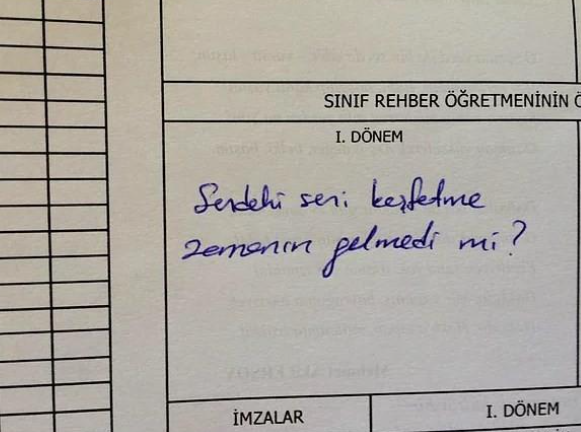 SINIF REHBER ÖĞRETMENİNİN Ö
I. DÖNEM
Sendeki seni keşfetme
zamanın gelmedi mi?
İMZALAR
I. DÖNEM